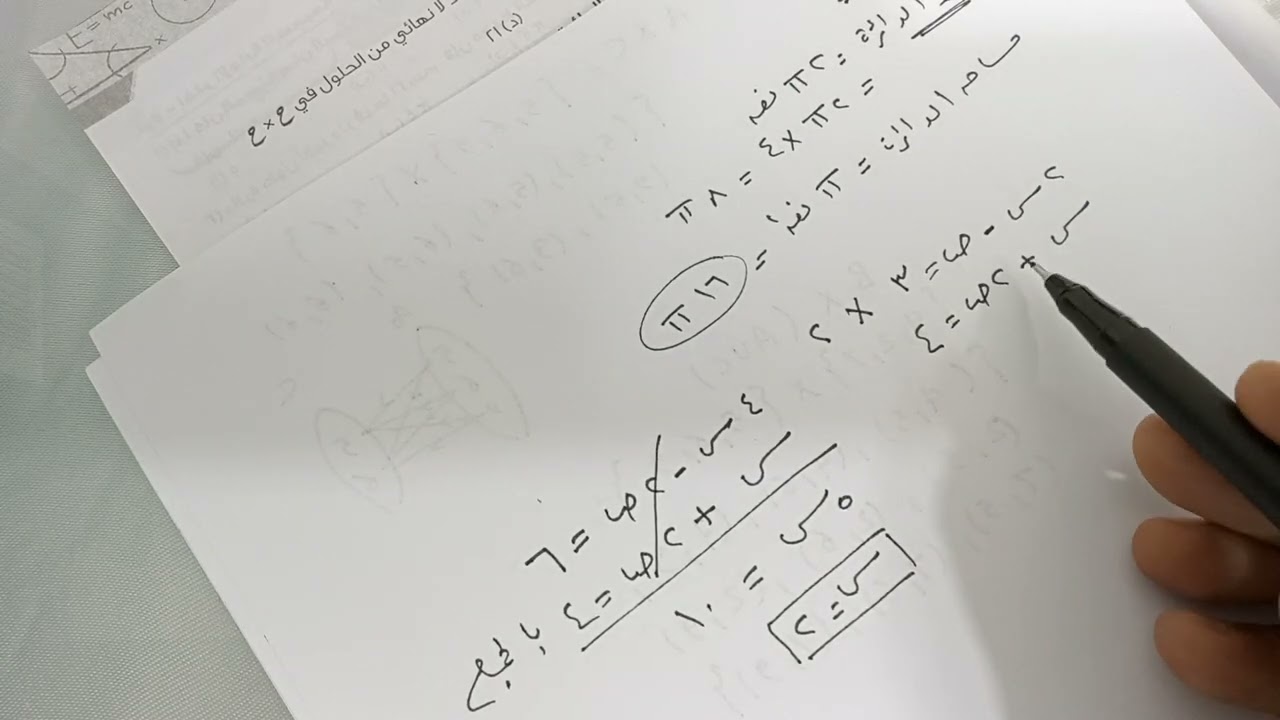 E=mc
لا نهائي من الحلول في ح × ح
(د) ٢١
الدائرة = ٢ π نق
= ٢ π × ٤ = ٨ π
مساحه الدائرة = π نق٢ = ١٦ π
٢ س - ص = ٣ × ٢
س + ٢ ص = ٤
٤ س - ٢ ص = ٦
س + ٢ ص = ٤ بالجمع
٥ س = ١٠
س = ٢